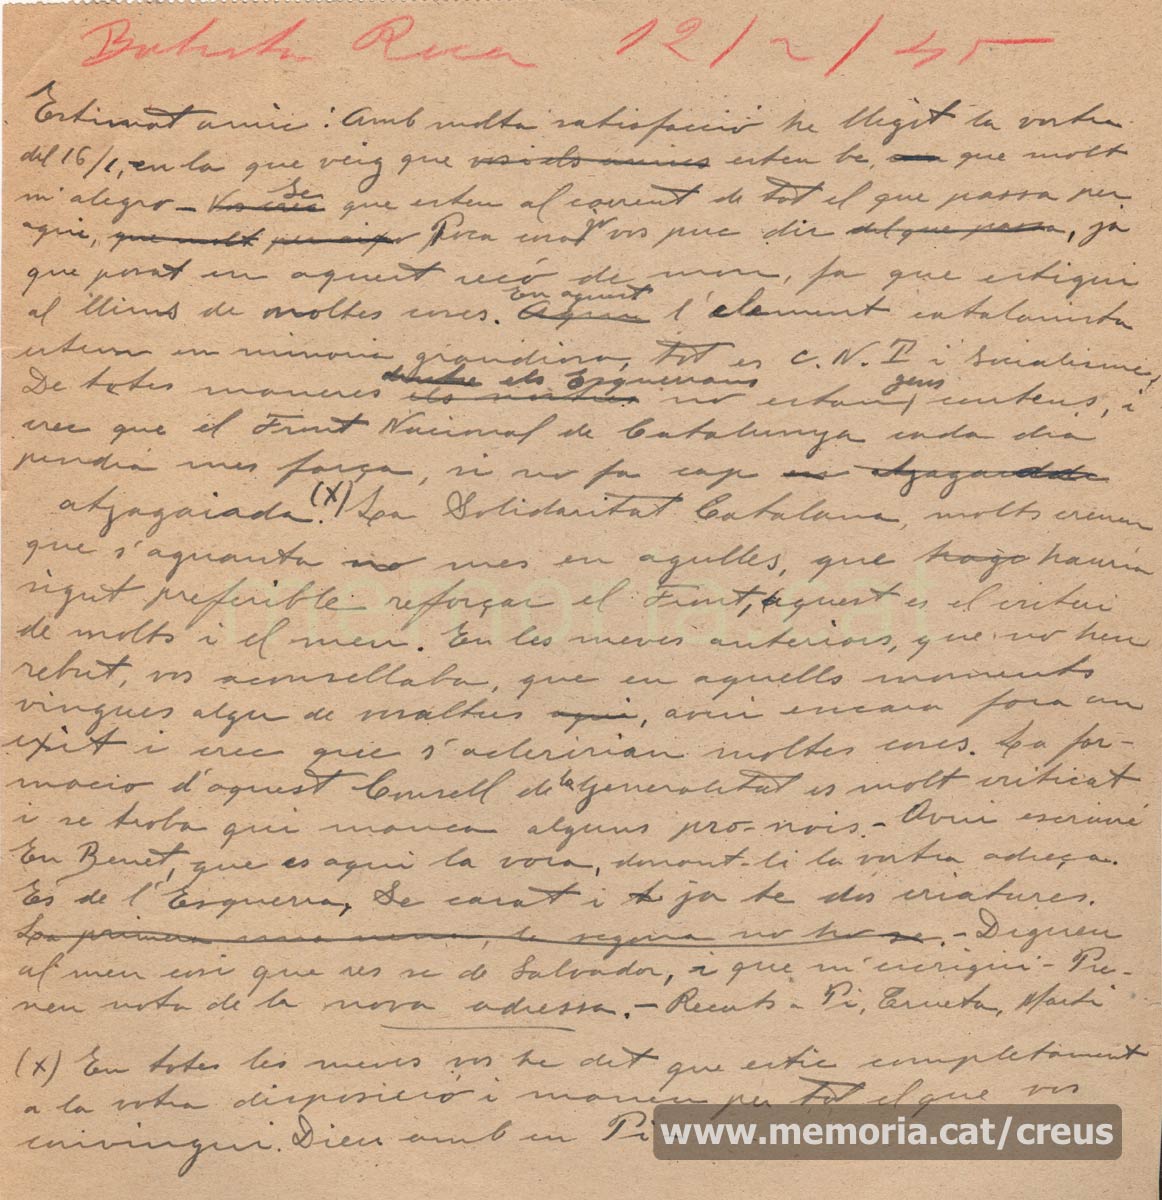 Batista Roca 12/2/45
Estimat amic: Amb molta satisfacció he llegit la vostra
del 16/1, en la que veig que esteu be, que molt
m'alegro - Vos crec Se que esteu al corrent de tot el que passa per
aqui, que molt per aixo Poca cosa vos puc dir del que passa, ja
que posat en aquest recó de mon, fa que estigui
al llims de moltes coses. Aqui En aquest l'element catalanista
estem en minoria grandiosa, tot es C.N.T i Socialisme,
De totes maneres els nostres dintre els Esquerrans no estan gens contens, i
crec que el Front Nacional de Catalunya cada dia
pendrá mes força, si no fa cap
atzagaiada.(X) La Solidaritat Catalana, molts creuen
que s'aguanta no mes en agulles, que hauria
sigut preferible reforçar el Front, aquest es el criteri
de molts i el meu. En les meves anteriors, que no heu
rebut, vos aconsellaba, que en aquells moments
vingues algu de vosaltres aqui, avui encara fora un
exit i crec que s'aclaririan moltes coses. La for-
macio d'aquest Consell de la Generalitat es molt criticat
i se troba qui manca alguns pro-nois. - Avui escriuré
En Benet, que es aqui la vora, donant-li la vostra adreça.
Es de l'Esquerra, Se casat i ja te dos criatures.
La primera una nena, la segona no ho se. - Digueu
al meu cosi que res se de Salvador, i que m'escrigui - Pre-
neu nota de la nova adressa. - Recorts a Pi, Ernesta, Marti
(x) En totes les meves vos he dit que estic completament
a la vostra disposició i maneu per tot el que vos
convingui. Dieu amb en Pi
memoria.cat
www.memoria.cat/creus